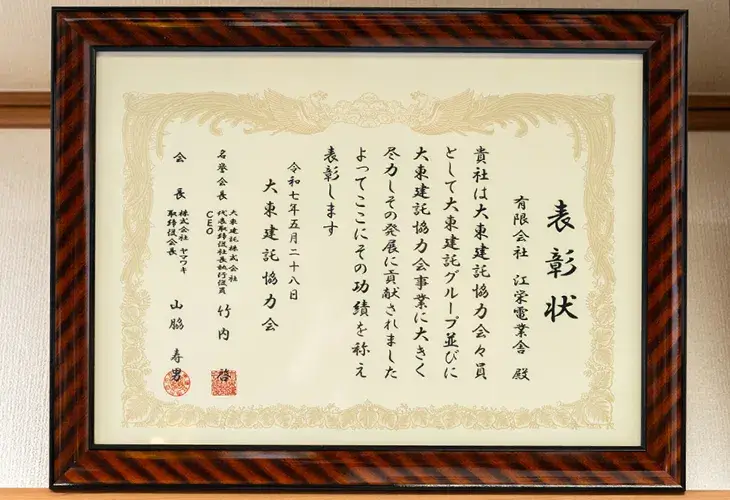 表彰状
有限会社 江栄電業舎 殿
貴社は大東建託協力会々員
として大東建託グループ並びに
大東建託協力会事業に大きく
尽力しその発展に貢献されました
よってここにその功績を称え
表彰します
令和七年五月二十八日
大東建託協力会
名誉会長 大東建託株式会社
代表取締役社長執行役員
CEO
竹内 啓
会長 株式会社 ヤマワキ
取締役会長
山脇 寿男